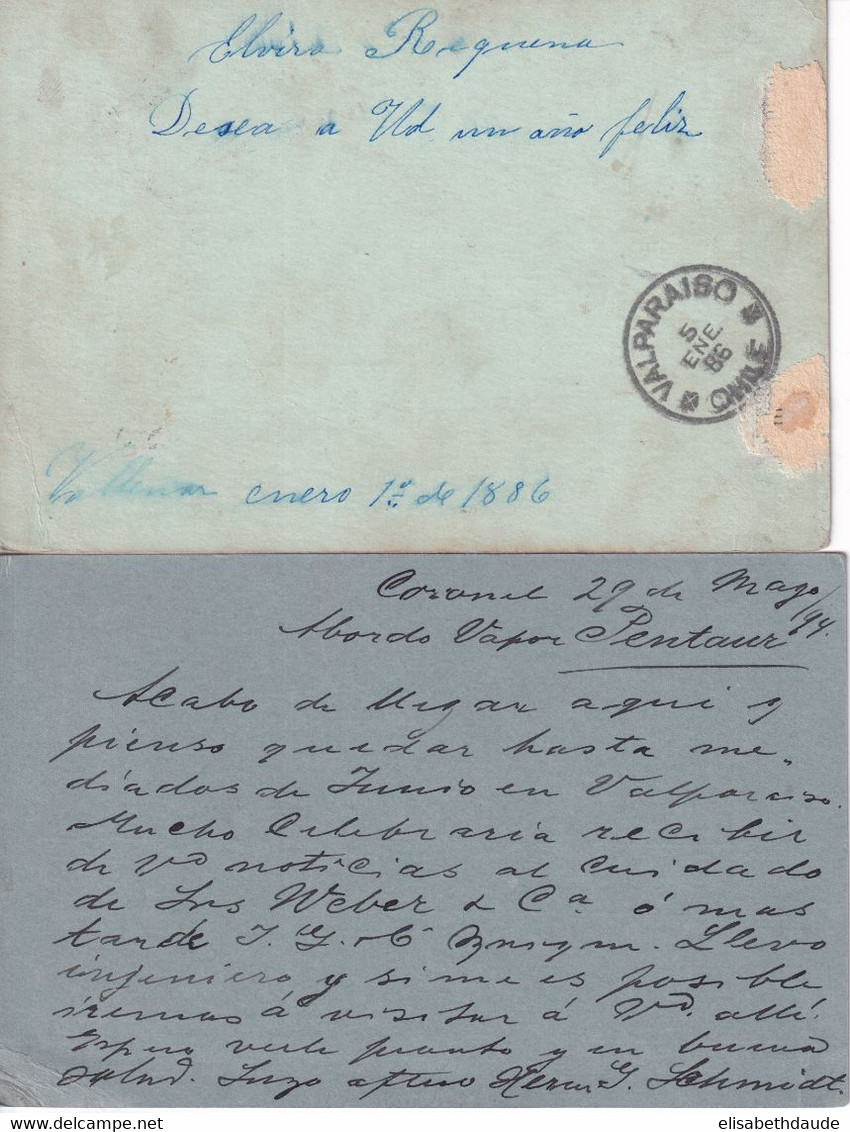 Elvira Requena
Desea a Ud. un año feliz
VALPARAISO
5
ENE
86
CHILE
Vallenar enero 1º de 1886
Coronel 29 de Mayo/94.
Abordo Vapor Pentaur
Acabo de llegar aqui y
pienso quedar hasta me„
diados de Junio en Valparaiso.
Mucho Celebraria recibir
de Vd noticias al cuidado
de Srs Weber & Ca. ó mas
tarde Llevo
ingeniero y si me es posible
iremos á visitar á Vd. allí.
Espero verle pronto y en buena
salud. Suyo afmo Herm. G. Schmidt.
elisabethdaude